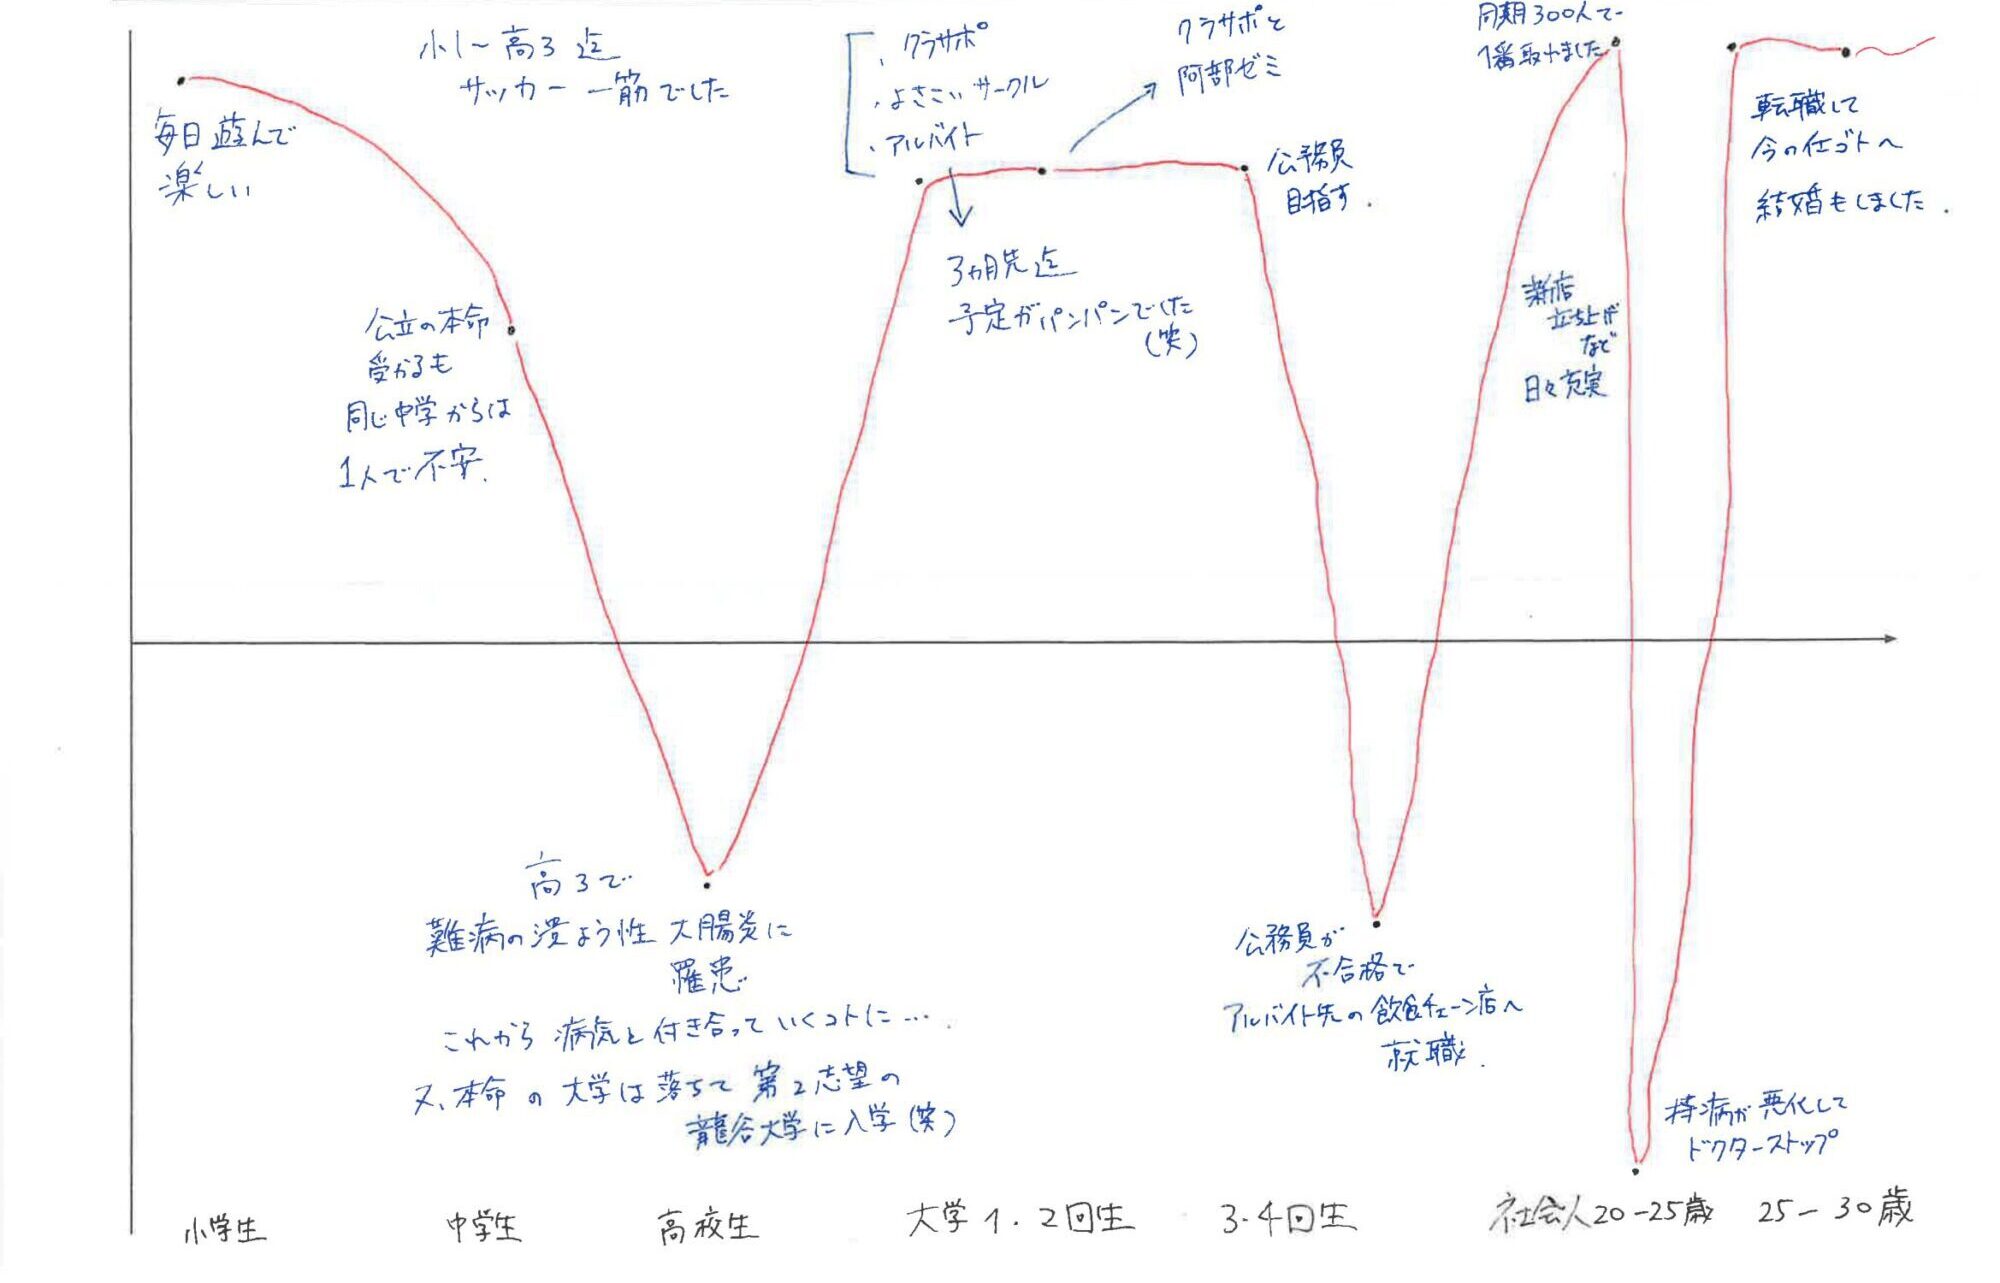 小1〜高3迄
サッカー一筋でした
毎日遊んで
楽しい
公立の本命
受かるも
同じ中学からは
1人で不安.
高3で
難病の潰よう性大腸炎に
罹患
これから病気と付き合っていくコトに….
又、本命の大学は落ちて第2志望の
龍谷大学に入学(笑)
・クラサポ
・よさこいサークル
・アルバイト
3ヵ月先迄
予定がパンパンでした
(笑)
クラサポと
阿部ゼミ
公務員
目指す.
公務員が
不合格で
アルバイト先の飲食チェーン店へ
就職.
同期300人で
1番取れました
新店
立ち上げ
など
日々充実
持病が悪化して
ドクターストップ
転職して
今の仕ゴトへ
結婚もしました.
小学生 中学生 高校生 大学1.2回生 3.4回生 社会人20-25歳 25-30歳